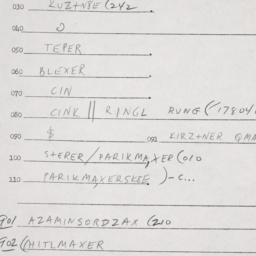 030 KUZTNIE (242
040 2
050 TEPER
060 BLEXER
070 CIN
080 CINK || RINGL RUNG (17804
090 $ 091 KIRZTNER
100 STEPER/PARIKMAXER (010
110 PARIKMAXERSKEE )-C...
901 AZAMINSORDZAX (210
902 (HITLMAXER